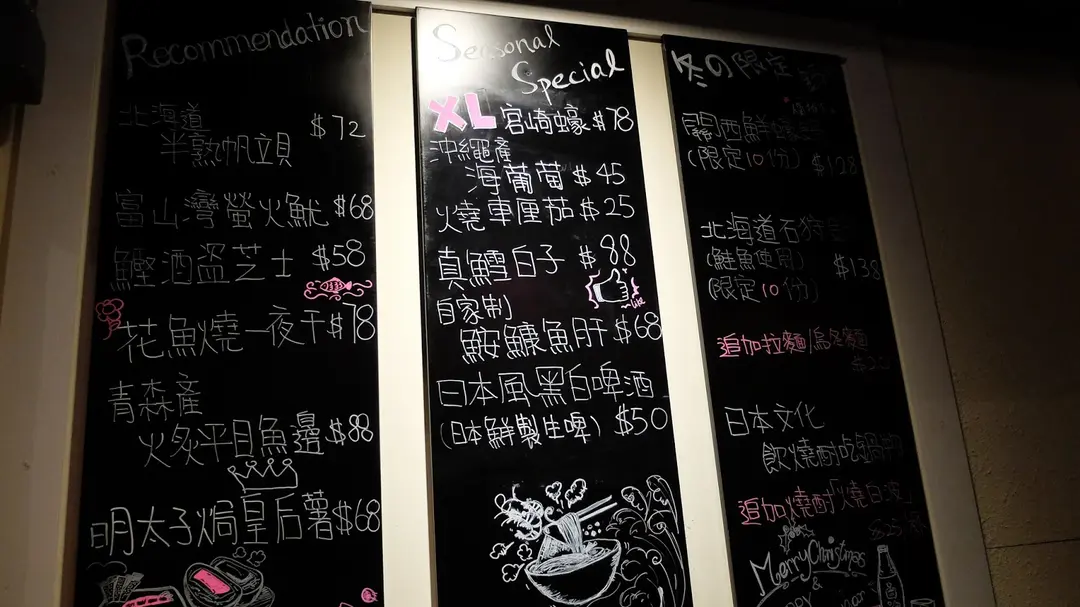 Recommendation
北海道
半熟帆立貝 $72
富山灣螢火魷 $68
鰹酒盜芝士 $58
花魚燒一夜干 $78
青森產
火炙平目魚邊 $88
明太子焗皇后薯 $68
Seasonal
Special
XL 宮崎蠔 $78
沖繩產
海葡萄 $45
燒車厘茄 $25
真鱈白子 $88
like
自家制
鮟鱇魚肝 $68
日本風黑白啤酒
(日本鮮製生啤) $50
冬の限定
關西鮮
(限定10份) $128
北海道石狩
(鮭魚使用) $138
(限定10份)
追加拉麵/烏冬麵
日本文化
飲燒酎吃鍋
追加燒酎「燒白波」
$25
Merry Christmas
&